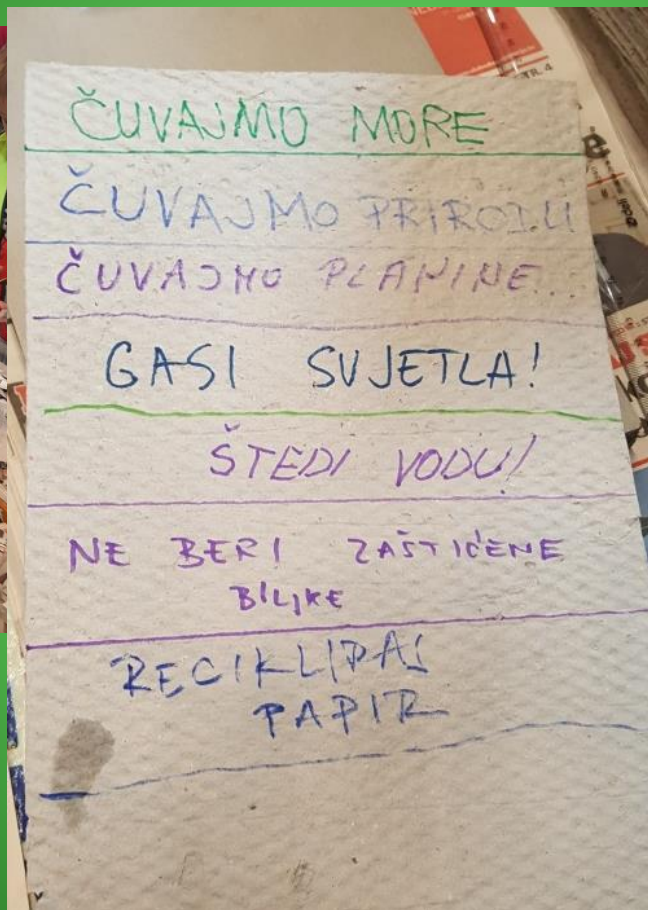 STR. 4
ČUVAJMO MORE
ČUVAJMO PRIRODU
ČUVAJMO PLANINE...
GASI SVJETLA!
ŠTEDI VODU!
NE BERI ZAŠTIĆENE
BILJKE
RECIKLIRAJ
PAPIR